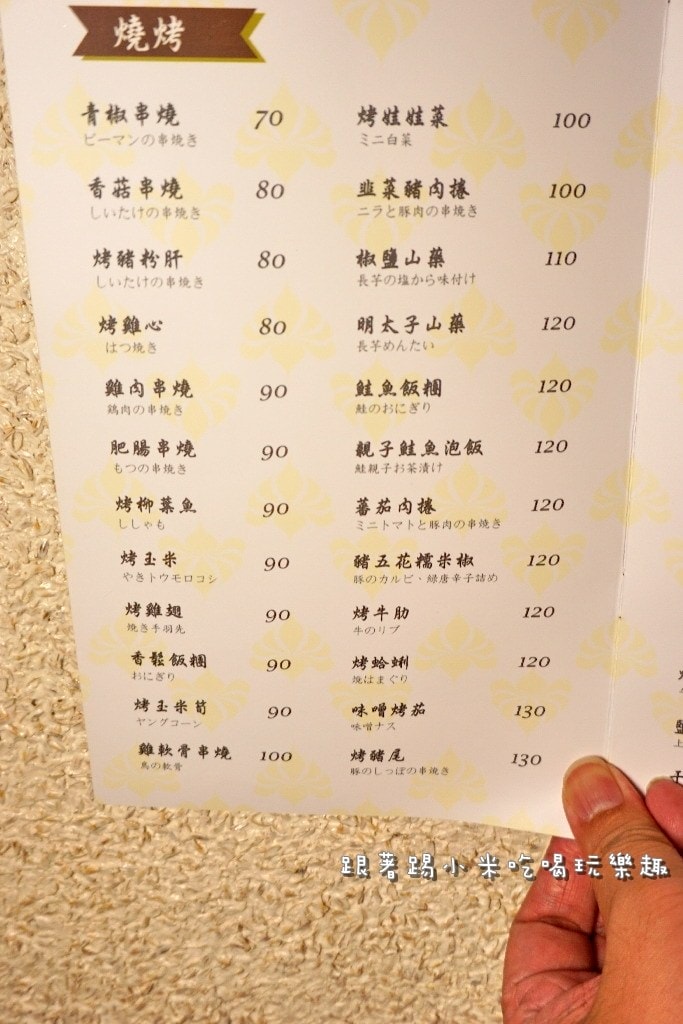 燒烤
青椒串燒 70
ピーマンの串焼き
香菇串燒 80
しいたけの串焼き
烤豬粉肝 80
しいたけの串焼き
烤雞心 80
はつ焼き
雞肉串燒 90
鶏肉の串焼き
肥腸串燒 90
もつの串焼き
烤柳葉魚 90
ししゃも
烤玉米 90
やきトウモロコシ
烤雞翅 90
焼き手羽先
香鬆飯糰 90
おにぎり
烤玉米筍 90
ヤングコーン
雞軟骨串燒 100
鳥の軟骨
烤娃娃菜 100
ミニ白菜
韭菜豬肉捲 100
ニラと豚肉の串焼き
椒鹽山藥 110
長芋の塩から味付け
明太子山藥 120
長芋めんたい
鮭魚飯糰 120
鮭のおにぎり
親子鮭魚泡飯 120
鮭親子お茶漬け
蕃茄肉捲 120
ミニトマトと豚肉の串焼き
豬五花糯米椒 120
豚のカルビ・緑唐辛子詰め
烤牛肋 120
牛のリブ
烤蛤蜊 120
焼はまぐり
味噌烤茄 130
味噌ナス
烤豬尾 130
豚のしっぽの串焼き
跟著踢小米吃喝玩樂趣